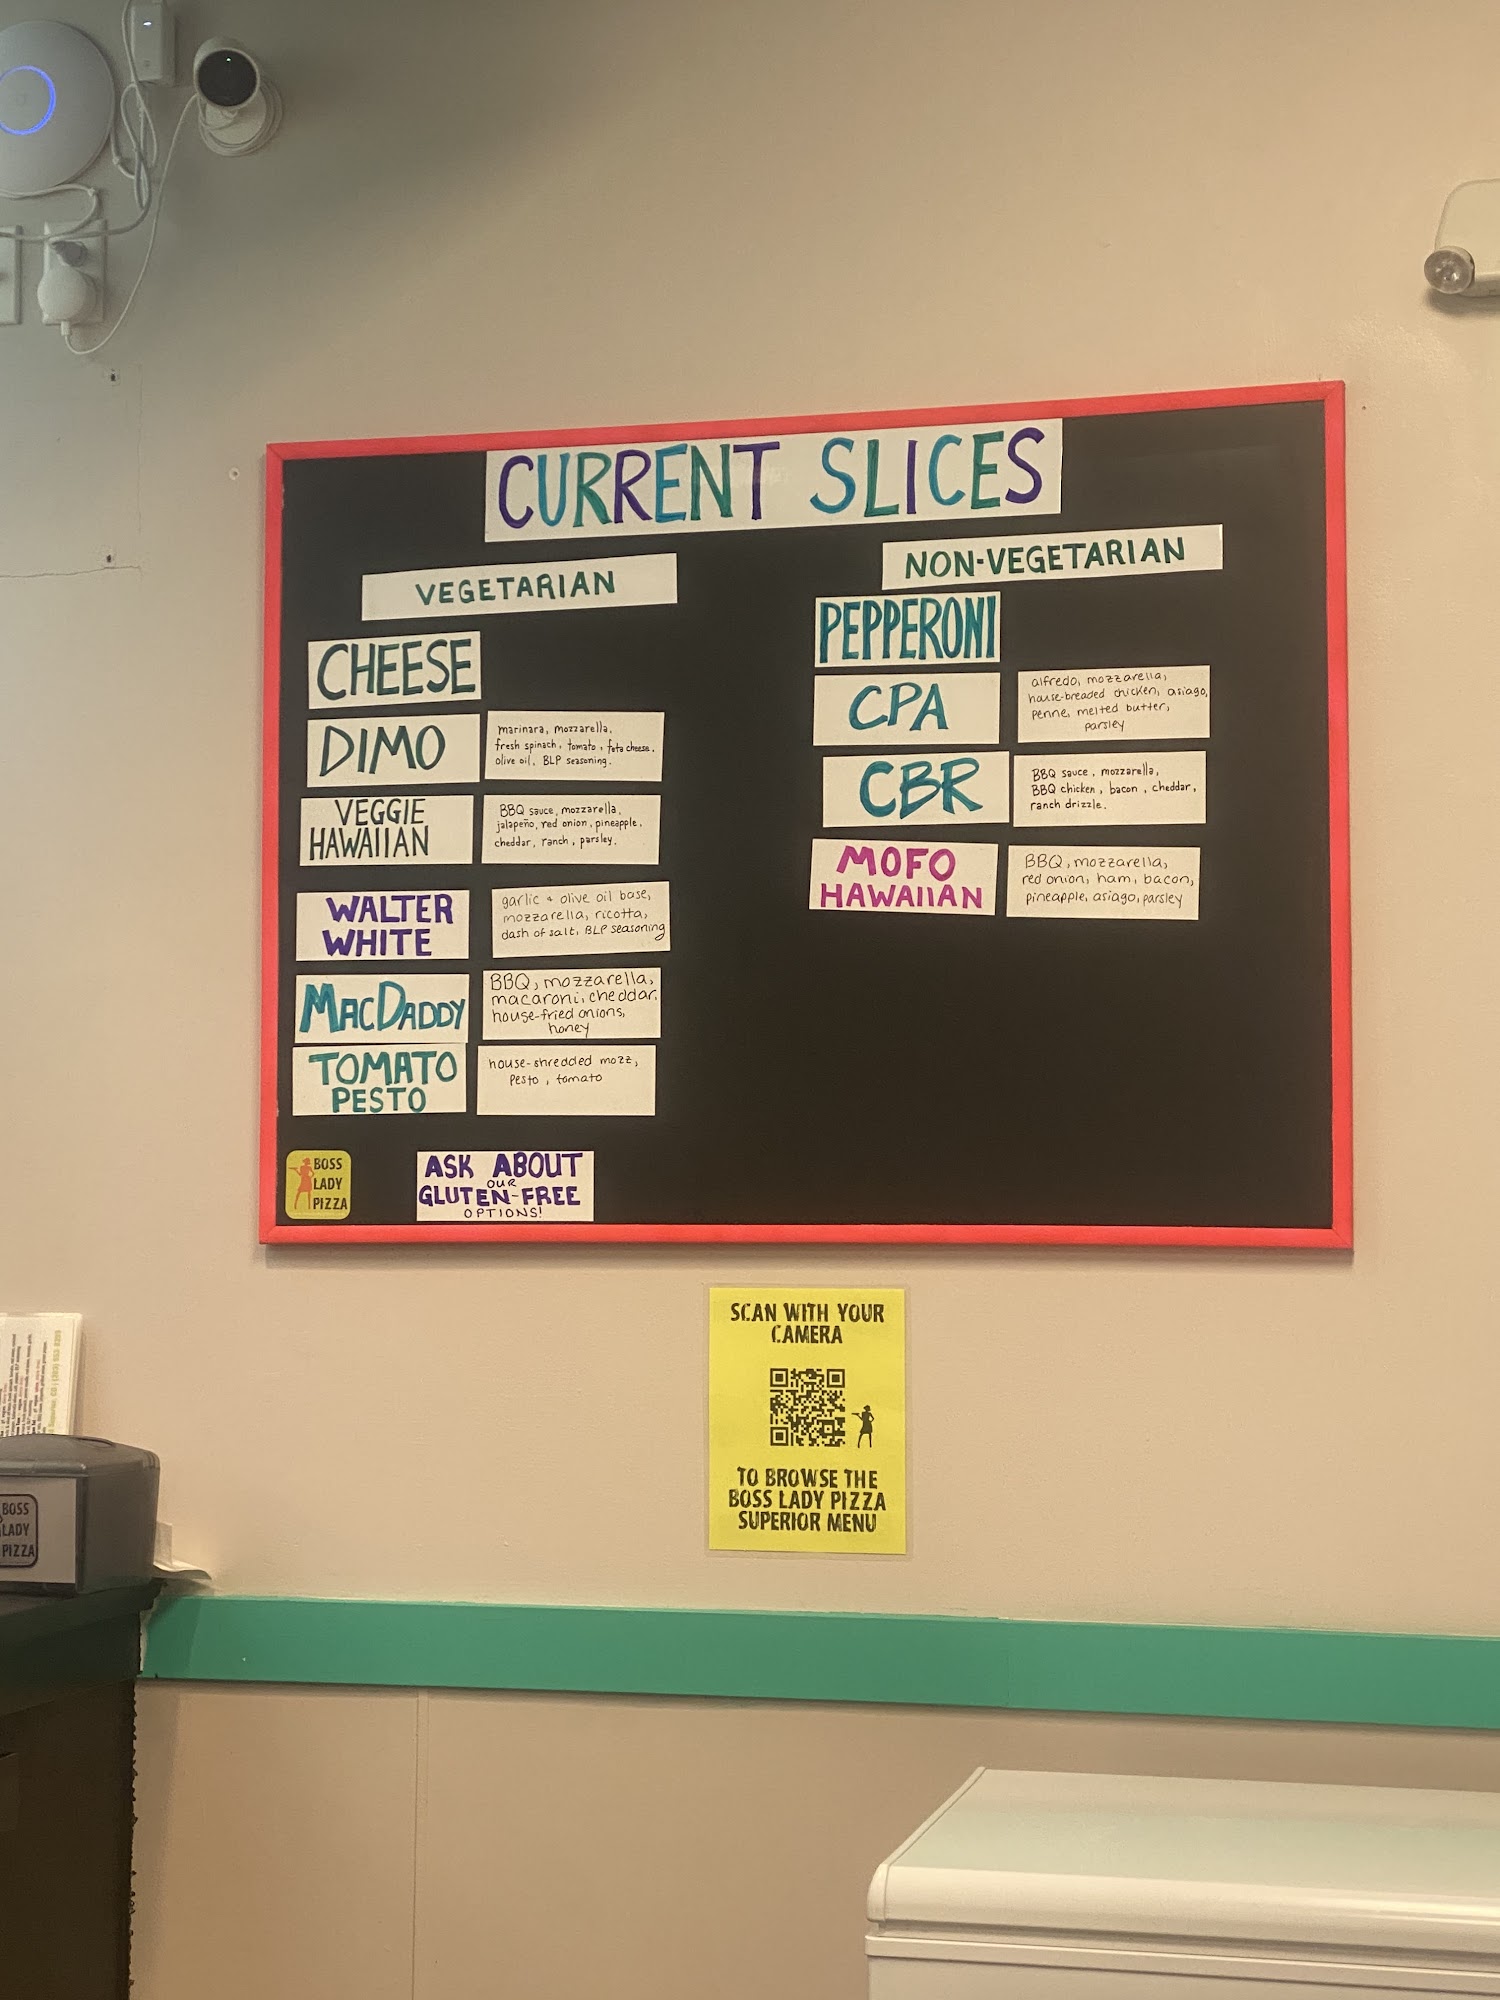 CURRENT SLICES
VEGETARIAN
CHEESE
DIMO
marinara, mozzarella,
fresh spinach, tomato, feta cheese,
olive oil, BLP seasoning.
VEGGIE
HAWAIIAN
BBQ sauce, mozzarella,
jalapeño, red onion, pineapple,
cheddar, ranch, parsley.
WALTER
WHITE
garlic + olive oil base,
mozzarella, ricotta,
dash of salt, BLP seasoning
MACDADDY
BBQ, mozzarella,
macaroni, cheddar,
house-fried onions,
honey
TOMATO
PESTO
house-shredded mozz,
pesto, tomato
NON-VEGETARIAN
PEPPERONI
CPA
alfredo, mozzarella,
house-breaded chicken, asiago,
penne, melted butter,
parsley
CBR
BBQ sauce, mozzarella,
BBQ chicken, bacon, cheddar,
ranch drizzle.
MOFO
HAWAIIAN
BBQ, mozzarella,
red onion, ham, bacon,
pineapple, asiago, parsley
BOSS
LADY
PIZZA
ASK ABOUT
OUR
GLUTEN-FREE
OPTIONS!
SCAN WITH YOUR
CAMERA
TO BROWSE THE
BOSS LADY PIZZA
SUPERIOR MENU
BOSS
LADY
PIZZA